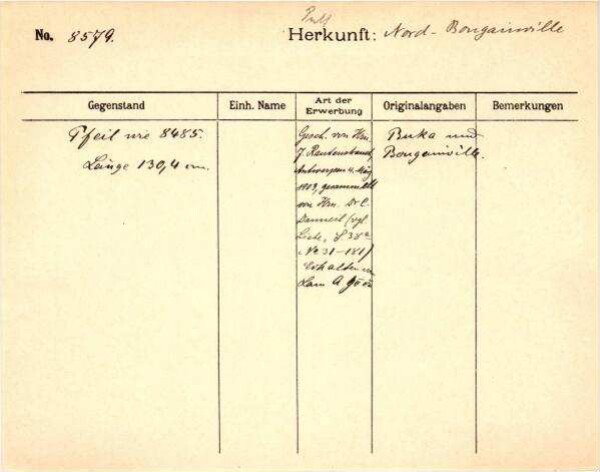 No. 8579.
Herkunft: Nord-Bougainville
Gegenstand
Einh. Name
Art der
Erwerbung
Originalangaben
Bemerkungen
Pfeil wie 8485.
Länge 130,4 cm.
Gesch. von Hrn.
J.
Antwerpen
1913, gesammelt
von Hrn. Dr. E.
(vgl.
Liste,
No 31-181)
Erhalten
Buka und
Bougainville.